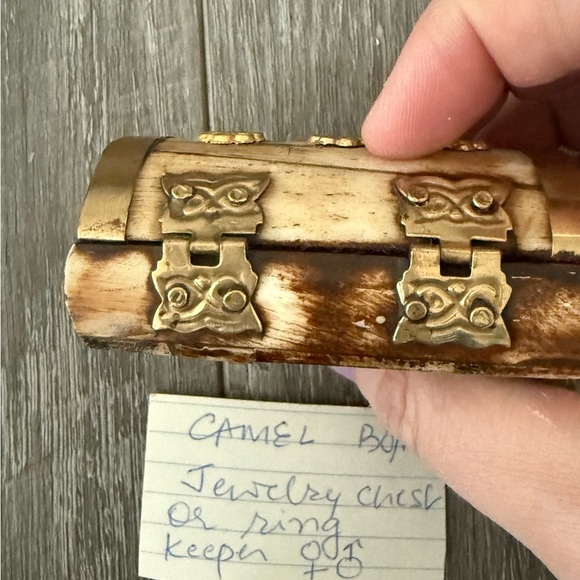 CAMEL
Jewelry chest
or ring
keeper ♀♂